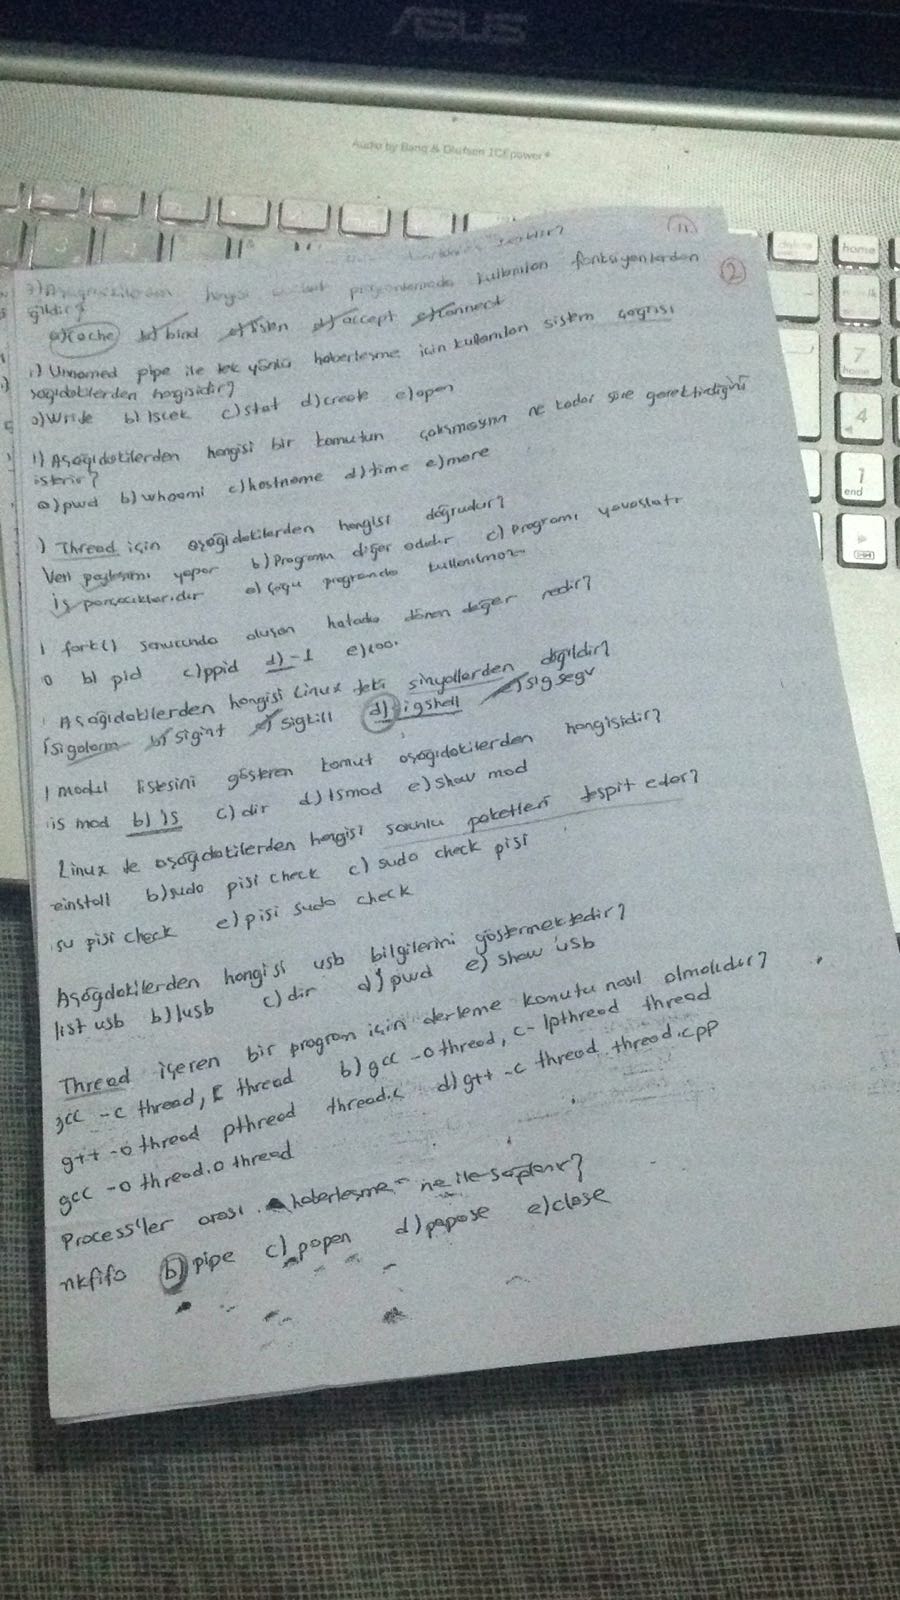 ASUS
Audio by Bang & Olufsen ICEpower®
home
7
home
4
1
end
11
2
hangisi kullanılan fonksiyonlardan
ğildir?
a)cache b) bind c) listen d) accept e) connect
1) Unnamed pipe ile tek yönlü haberleşme için kullanılan sistem çağrısı
şağıdakilerden hangisidir?
a) Write b) lseek c) stat d) create e) open
1) Aşağıdakilerden hangisi bir komutun çalışmasının ne kadar süre gerektirdiğini
isterir?
a) pwd b) whoami c) hostname d) time e) more
) Thread için aşağıdakilerden hangisi doğrudur?
Veri paylaşımı yapar b) Programın diğer adıdır c) Programı yavaşlatır
İş parçacıklarıdır e) Çoğu programda kullanılmaz
fork() sonucunda oluşan hatada dönen değer nedir?
0 b) pid c) ppid d) -1 e) 100.
Aşağıdakilerden hangisi Linux teki sinyallerden değildir?
Sigalarm b) sigint c) sigkill d) sigshell e) sigsegv
modül listesini gösteren komut aşağıdakilerden hangisidir?
is mod b) ls c) dir d) lsmod e) show mod
Linux de aşağıdakilerden hangisi sorunlu paketleri tespit eder?
einstall b) sudo pisi check c) sudo check pisi
su pisi check e) pisi sudo check
Aşağıdakilerden hangisi usb bilgilerini göstermektedir?
list usb b) lusb c) dir d) pwd e) show usb
Thread içeren bir program için derleme komutu nasıl olmalıdır?
gcc -c thread, thread b) gcc -o thread, c -lpthread thread
g++ -o thread pthread thread.c d) g++ -c thread thread.cpp
gcc -o thread.o thread
Process'ler arası haberleşme ne ile sağlanır?
mkfifo b) pipe c) popen d) papose e) close